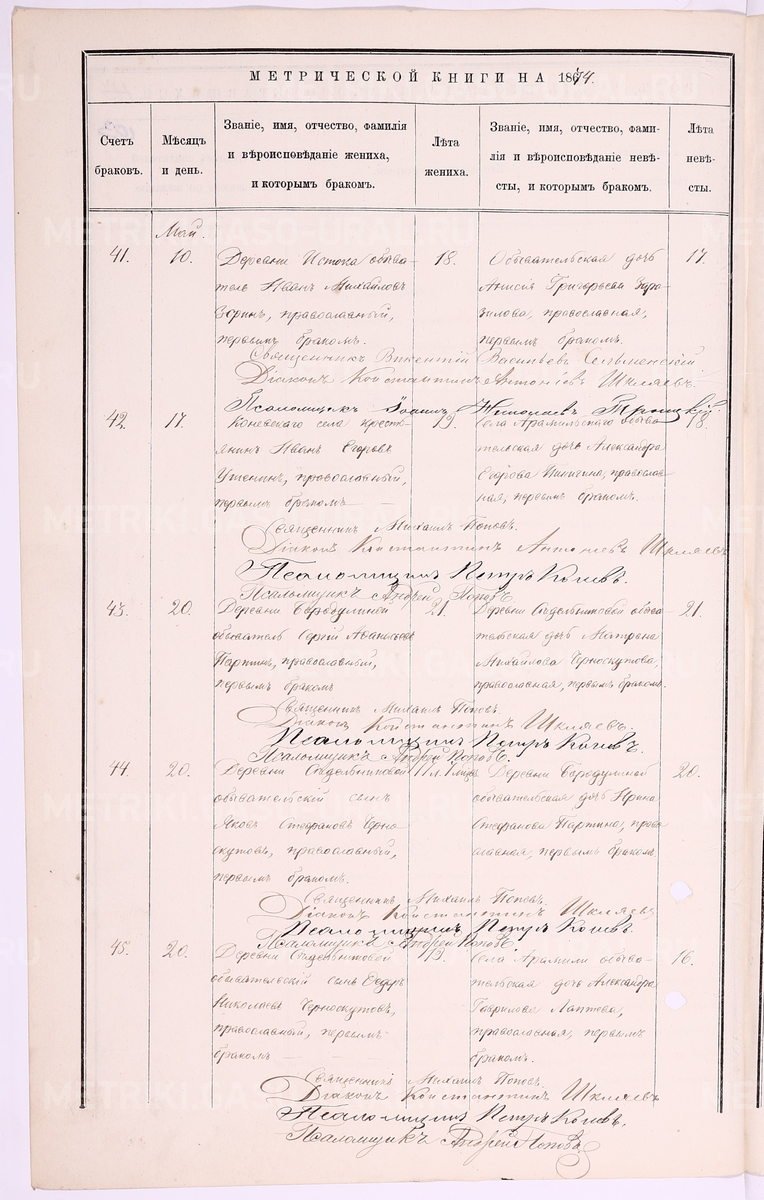 МЕТРИЧЕСКОЙ КНИГИ НА 1874.
Счетъ браковъ.
Мѣсяцъ и день.
Званіе, имя, отчество, фамилія
и вѣроисповѣданіе жениха,
и которымъ бракомъ.
Лѣта жениха.
Званіе, имя, отчество, фами-
лія и вѣроисповѣданіе невѣ-
сты, и которымъ бракомъ.
Лѣта невѣ-
сты.
Май.
41. 10. Деревни Истока обыва- 18. Обывательская дочь 17.
тель Иванъ Михайловъ Анисья Григорьева
Зоринъ, православный, православная,
первымъ бракомъ. первымъ бракомъ.
Священникъ Викентій Васильевъ
Діаконъ Константинъ Антоніевъ Шкляевъ
Псаломщикъ Іоаннъ Николаевъ Троицкій.
42. 17. Коневскаго села кресть- 19. Села Арамильскаго обыва- 18.
янинъ Иванъ Егоровъ тельская дочь Александра
православный, Егорова православ-
первымъ бракомъ ная, первымъ бракомъ.
Священникъ Михаилъ Поповъ.
Діаконъ Константинъ Антоніевъ Шкляевъ
Псаломщикъ Петръ Коневъ.
Псаломщикъ Андрей Поповъ
43. 20. Деревни Бородулиной 21. Деревни обыва- 21.
обыватель Сергій тельская дочь Матрона
Партинъ, православный, Михайлова Черноскутова,
первымъ бракомъ православная, первымъ бракомъ.
Священникъ Михаилъ Поповъ.
Діаконъ Константинъ Шкляевъ.
Псаломщикъ Петръ Коневъ.
Псаломщикъ Андрей Поповъ.
44. 20. Деревни Деревни Бородулиной 20.
обывательскій сынъ обывательская дочь Ирина
Яковъ Стефановъ Черно- Стефанова Партина, право
скутовъ, православный, славная, первымъ бракомъ
первымъ бракомъ.
Священникъ Михаилъ Поповъ.
Діаконъ Константинъ Шкляевъ
Псаломщикъ Петръ Коневъ.
Псаломщикъ Андрей Поповъ.
45. 20. Деревни 19. Села Арамили обыва- 16.
обывательскій сынъ Ѳедоръ тельская дочь Александра
Николаевъ Черноскутовъ, Гаврилова Лаптева,
православный, первымъ православная, первымъ
бракомъ бракомъ.
Священникъ Михаилъ Поповъ.
Діаконъ Константинъ Шкляевъ
Псаломщикъ Петръ Коневъ.
Псаломщикъ Андрей Поповъ
METRIKI.GASO-URAL.RU